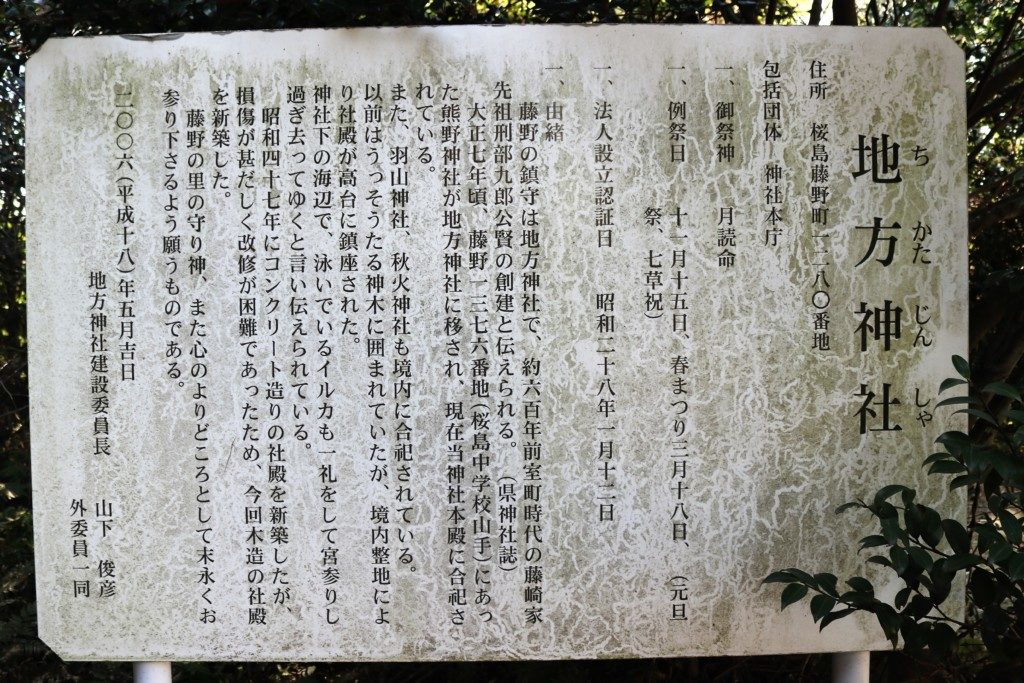 地方神社
ちかたじんしゃ
住所 桜島藤野町一二八〇番地
包括団体 神社本庁
一、御祭神 月読命
一、例祭日 十一月十五日、春まつり三月十八日、(元旦
祭、七草祝)
一、法人設立認証日 昭和二十八年一月十二日
一、由緒
藤野の鎮守は地方神社で、約六百年前室町時代の藤崎家
先祖刑部九郎公賢の創建と伝えられる。(県神社誌)
大正七年頃、藤野一三七六番地(桜島中学校山手)にあっ
た熊野神社が地方神社に移され、現在当神社本殿に合祀さ
れている。
また、羽山神社、秋火神社も境内に合祀されている。
以前はうっそうたる神木に囲まれていたが、境内整地によ
り社殿が高台に鎮座された。
神社下の海辺で、泳いでいるイルカも一礼をして宮参りし
過ぎ去ってゆくと言い伝えられている。
昭和四十七年にコンクリート造りの社殿を新築したが、
損傷が甚だしく改修が困難であったため、今回木造の社殿
を新築した。
藤野の里の守り神、また心のよりどころとして末永くお
参り下さるよう願うものである。
二〇〇六(平成十八)年五月吉日
地方神社建設委員長 山下 俊彦
外委員一同